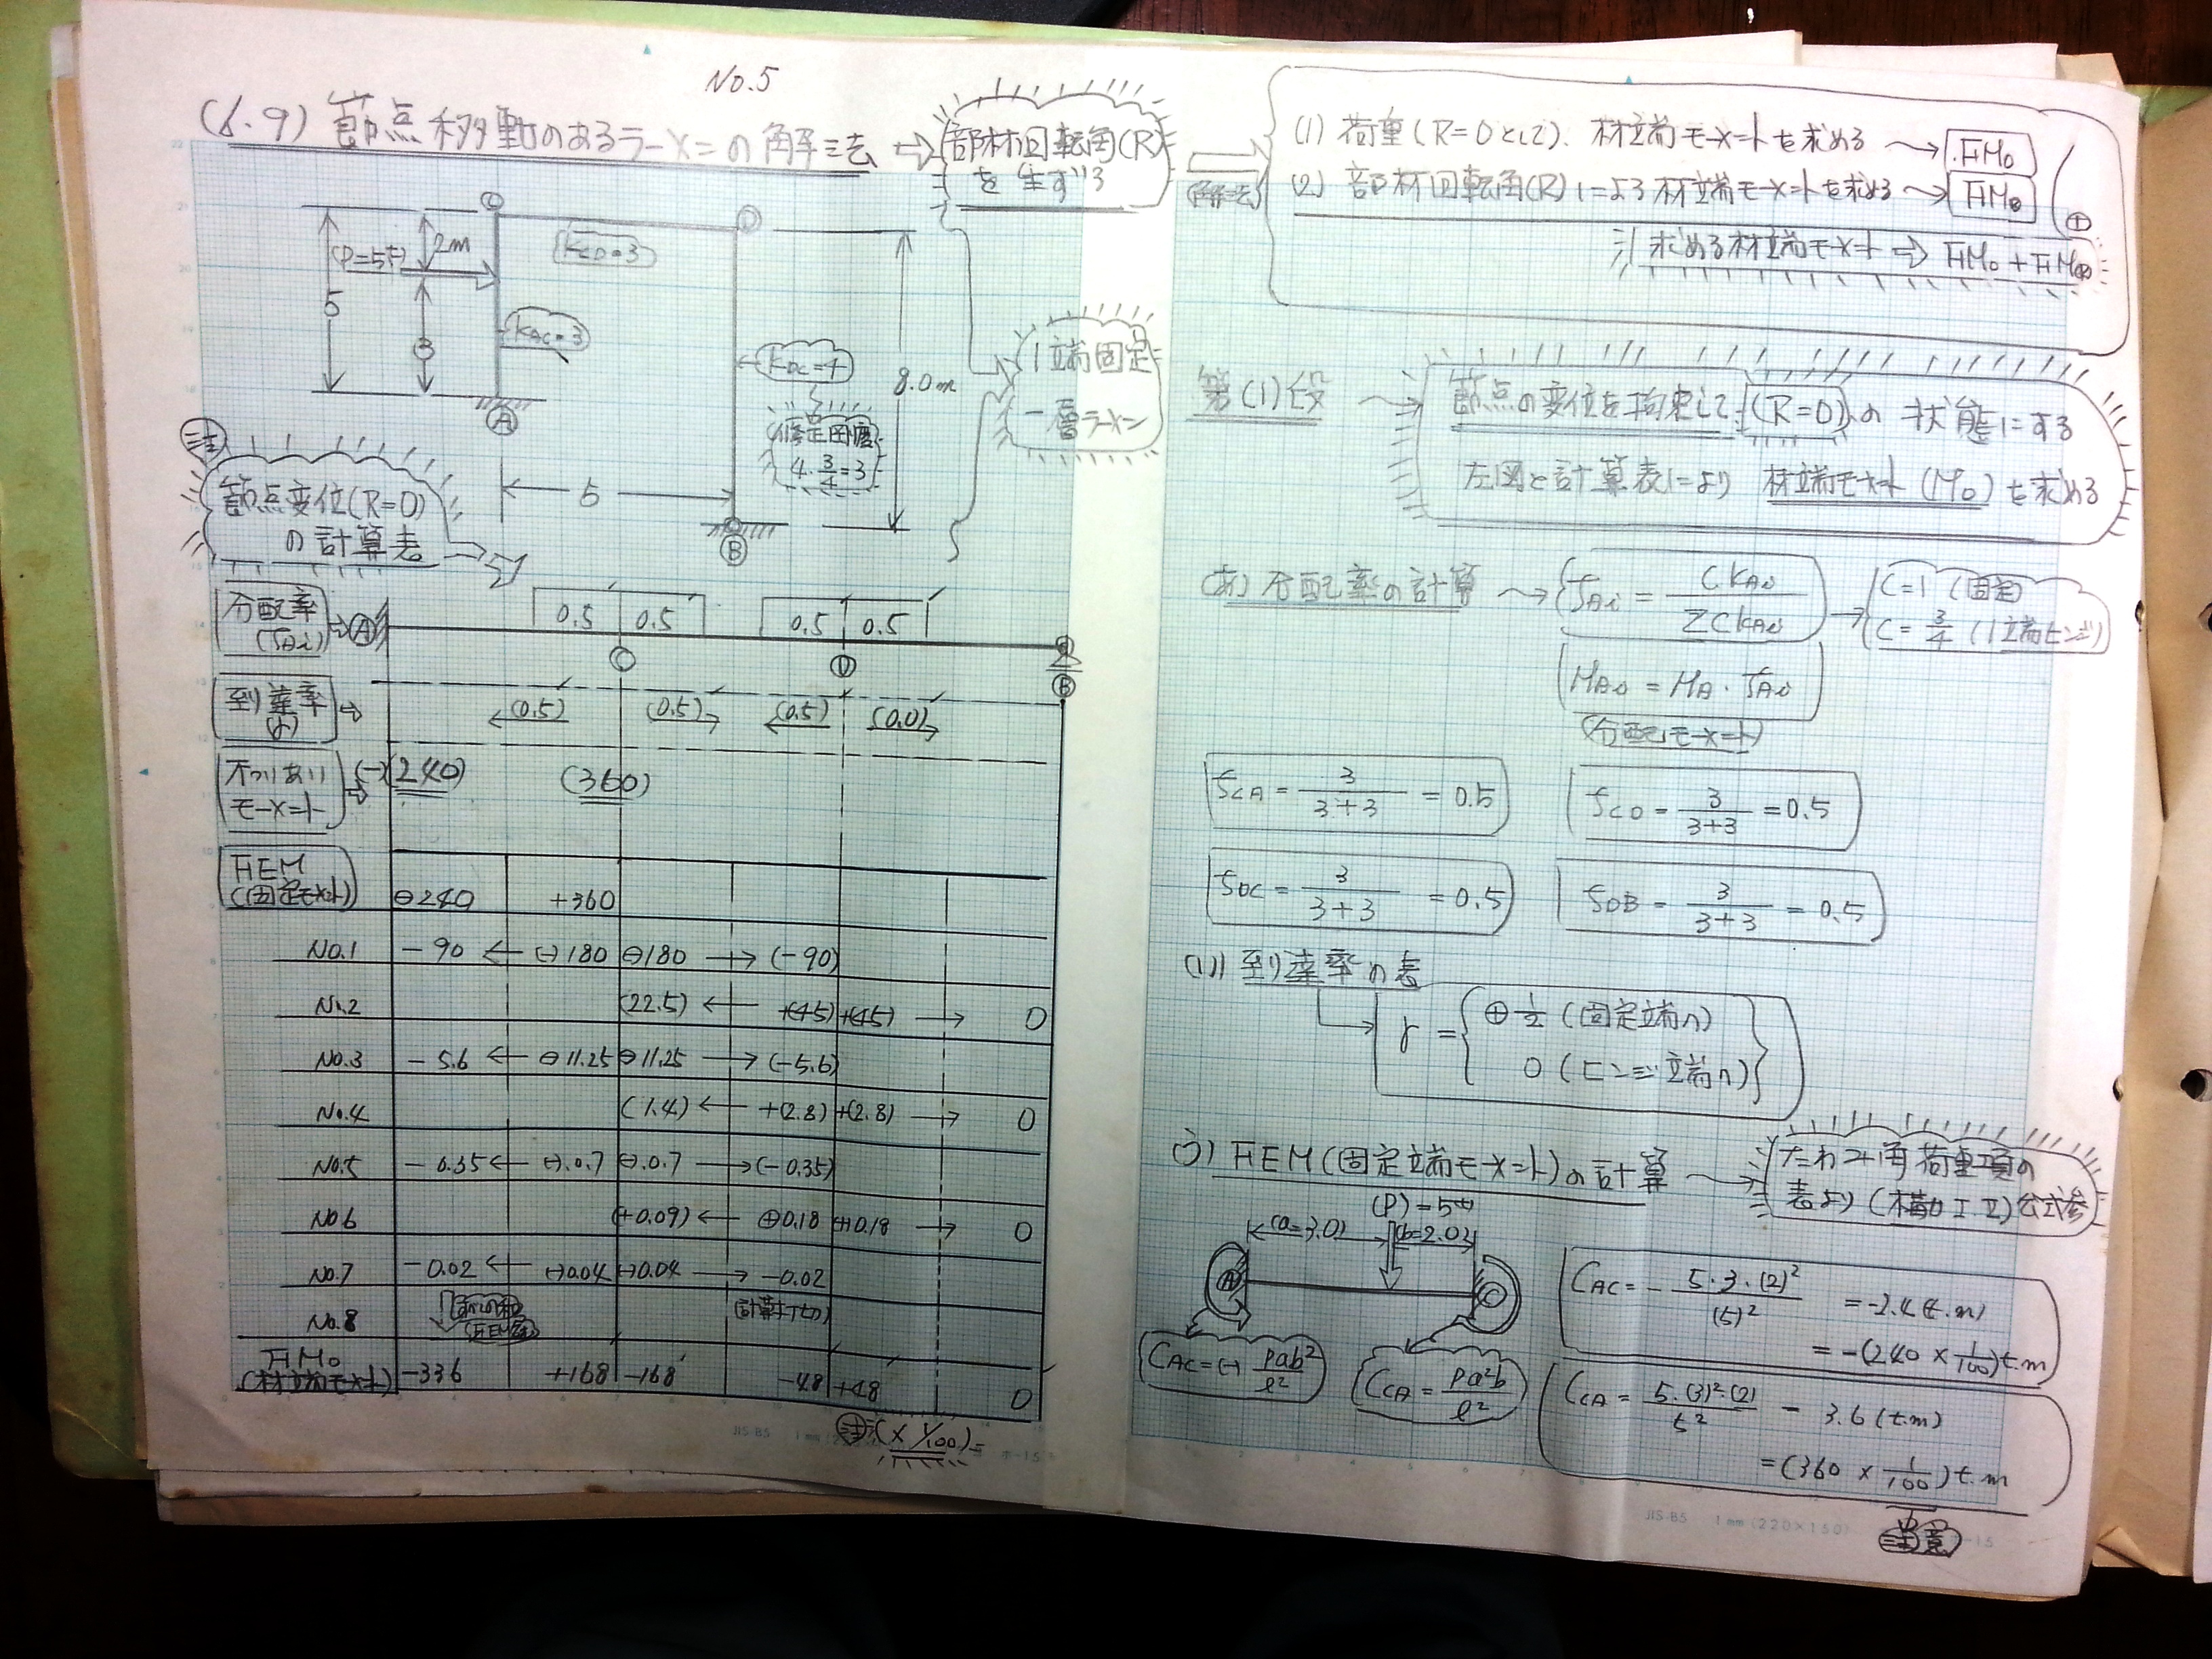 No.5
(6.9) 節点移動のあるラーメンの解法 ⇨ 部材回転角(R)
を生ずる
C
D
(P=5t)
2m
KCD=3
5
3
KAC=3
KDC=4
8.0m
修正剛度
4・3/4=3
A
5
B
1端固定
一層ラーメン
注
節点変位(R=0)
の計算表
分配率
A
0.5 0.5 0.5 0.5
C D B
到達率
(0.5) (0.5) (0.5) (0.0)
不つりあい
モーメント
(-)(240) (360)
FEM
(固定モーメント) ⊖240 +360
No.1 -90 ← (-)180 ⊖180 → (-90)
No.2 (22.5) ← +(45) +(45) → 0
No.3 -5.6 ← ⊖11.25 ⊖11.25 → (-5.6)
No.4 (1.4) ← +(2.8) +(2.8) → 0
No.5 -0.35 ← (-)0.7 (-)0.7 → (-0.35)
No.6 (+0.09) ← ⊕0.18 +0.18 → 0
No.7 -0.02 ← (-)0.04 (-)0.04 → -0.02
No.8 (計算打切)
FM₀
(材端モーメント) -336 +168 -168 -48 +48 0
注 (×1/100)
(解法)
(1) 荷重(R=0として). 材端モーメントを求める → FM₀
(2) 部材回転角(R)による材端モーメントを求める →
求める材端モーメント ⇒
第(1)段
節点の変位を拘束して(R=0)の状態にする
左図と計算表により 材端モーメント(M₀)を求める
(あ) 分配率の計算 → fAi = CKAi / ΣCKAi → C=1 (固定)
C=3/4 (1端ヒンジ)
MAi = MA・fAi
(分配モーメント)
fCA = 3/(3+3) = 0.5 fCD = 3/(3+3) = 0.5
fDC = 3/(3+3) = 0.5 fDB = 3/(3+3) = 0.5
(い) 到達率の表
γ = { ⊕1/2 (固定端へ)
0 (ヒンジ端へ) }
う) FEM(固定端モーメント)の計算 → たわみ角荷重項の
表より(構力I.II)公式参
(P)=5t
(a=3.0) (b=2.0)
A C
CAC = - 5・3・(2)²/(5)² = -2.4(t.m)
= -(240 × 1/100)t.m
CAC=(-) Pab²/ℓ² CCA = Pa²b/ℓ²
CCA = 5・(3)²・(2)/5² = 3.6(t.m)
= (360 × 1/100)t.m
注意
JIS-B5
JIS-B5 1mm(220×150) ホ-15